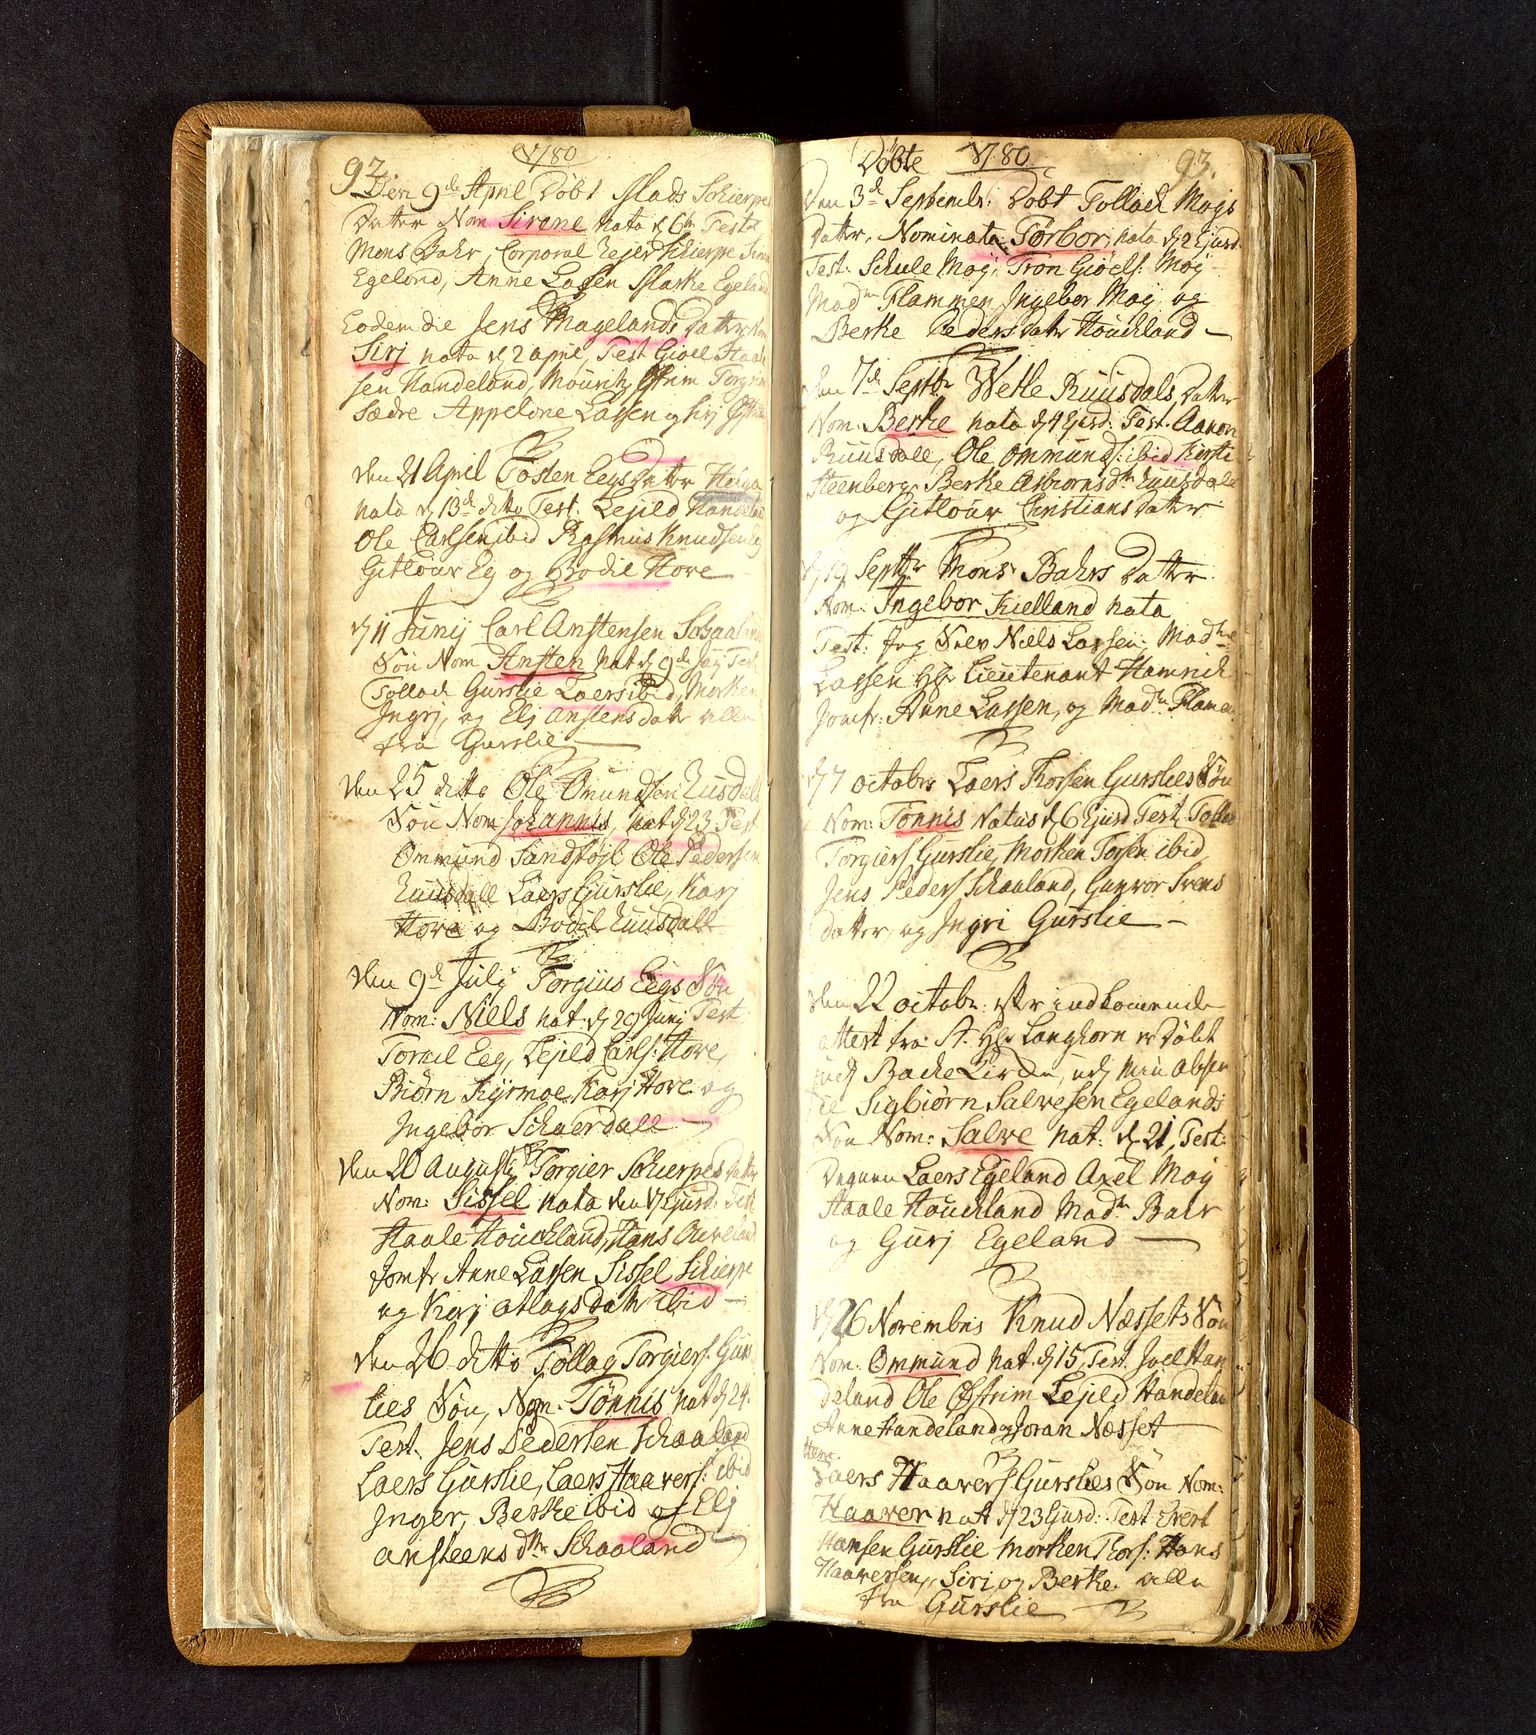 92.
1780
Den 9de April Döbt Mads Schierpes
Datter Nom Sirene nata d 6te Test
Mons Bahr, Corporal Rejer Schierpe
Egeland, Anne Lassen Marthe Egeland
Eodem die Jens Magelands Datter Nom
Sirj nata d 2 april, Test Gioel Haal
sen Handeland, Mouritz Østrim Torgrim
Sædre Appelone Lassen og Sirj
den 21 April Tosten Eegs Datter Helga
nata d 13de ditto Test: Lejeld Handeland
Ole Carlsen ibid Rasmus Knudsen Eeg
Gitlour Eg og Bodil Hove
d 11 Junij Carl Anstensen
Søn Nom Ansten nat d 9de Test
Tollach Gurslie Laers ibid, Morken
Ingrj, og Elj Anstensdatter alle
fra Gurslie
den 25 ditto Ole Omundsen Ruusdals
Søn Nom Johannis, nat d 23 Test
Ommund Sandstøjl Ole Pedersen
Ruusdall Laers Gurslie, Karj
Hove og Bodil Ruusdall
den 9de July Torgiius Eegs Søn
Nom: Niels nat d 29 Junj Test
Tomil Eeg, Lejeld Carls: Hove,
Biörn Kyrmoe Karj Hove og
Ingebor Schuerdall
den 20 Augustj Torgier Schierpes datter
Nom: Sissel nata den 17 Ejusd: Test
Haale Houchland, Hans Ouveland
Jomfr Anne Lassen Sissel Schierpe
og Karj Atlagsdatter ibid
den 26 ditto Tollag Torgiers: Gurs
lies Søn, Nom: Tönnis nat d 24
Test: Jens Pedersen Schaaland
Laers Gurslie, Laers Haavers: ibid
Inger, Berthe ibid og Elj
ansteens dtr Schaaland
Döbte 1780
93.
Den 3de Septembr: Dobt Tollach Mojs
Datter, Nominata Torbor, nata d 2 Ejusd
Test: Schule Moÿ, Tron Giöels: Moÿ
Madm Flammen Ingebor Moÿ og
Berthe Pedersdatter Houchland
den 7de Septbr Wetle Ruusdals Datter
Nom: Berthe nata d 4 Ejusd: Test: Aanon
Ruusdall, Ole Ommunds: ibid Kirsti
Steenberg, Berthe Asbiornsdtr Ruusdale
og Gitlour Christiansdatter
d 19 Septbr Monsr Bahrs Datter
Nom: Ingebor Kielland nata
Test: Niels Lassen, Madme
Lassen Hr Lieutenant Hamrich
Jomfr: Anne Lassen, og Madm Flamen
d 7 octobr Laers Thorsen Gurslies Søn
Nom: Tonnis Natus d 6 Ejusd Test, Tollac
Torgiers Gurslie, Morken Torsen ibid
Jens Peders Schaaland, Gunvor Svens
datter, og Ingri Gurslie
den 22 octobr: efter indkomende
attest fra Hr Langhorn er Döbt
Bache Kirche, ved min absen
tie Sigbiörn Salvesen Egelands
Søn Nom: Salve nat: d 21, Test:
Degnen Laers Egeland Axel Moÿ
Haale Houchland Madm Bahr
og Gurj Egeland
d 26 Novembris Knud Næssets Søn
Nom. Ommund nat. d 15, Test. Joel Han
deland Ole Østrim Lejeld Handeland
Anne Handeland og Joran Næsset
Laers Haavers Gurslies Søn Nom:
Haaver nat d 23 Ejusd: Test Evert
Hansen Gurslie Morken Thors: Hans
Haaversen, Siri og Berthe alle
fra Gurslie